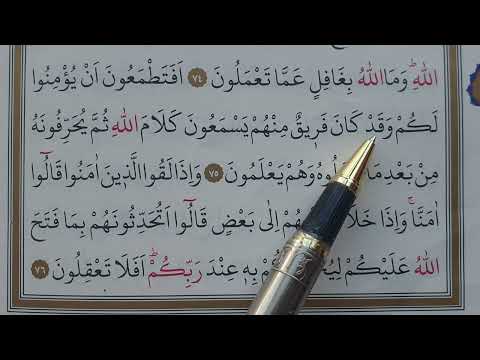 اللّٰهِۜ وَمَا اللّٰهُ بِغَافِلٍ عَمَّا تَعْمَلُونَ ﴿٧٤﴾ اَفَتَطْمَعُونَ اَنْ يُؤْمِنُوا
لَكُمْ وَقَدْ كَانَ فَر۪يقٌ مِنْهُمْ يَسْمَعُونَ كَلَامَ اللّٰهِ ثُمَّ يُحَرِّفُونَهُ
مِنْ بَعْدِ وَهُمْ يَعْلَمُونَ ﴿٧٥﴾ وَاِذَا لَقُوا الَّذ۪ينَ اٰمَنُوا قَالُٓوا
اٰمَنَّاۚ وَاِذَا اِلٰى بَعْضٍ قَالُٓوا اَتُحَدِّثُونَهُمْ بِمَا فَتَحَ
اللّٰهُ عَلَيْكُمْ بِه۪ عِنْدَ رَبِّكُمْۜ اَفَلَا تَعْقِلُونَ ﴿٧٦﴾